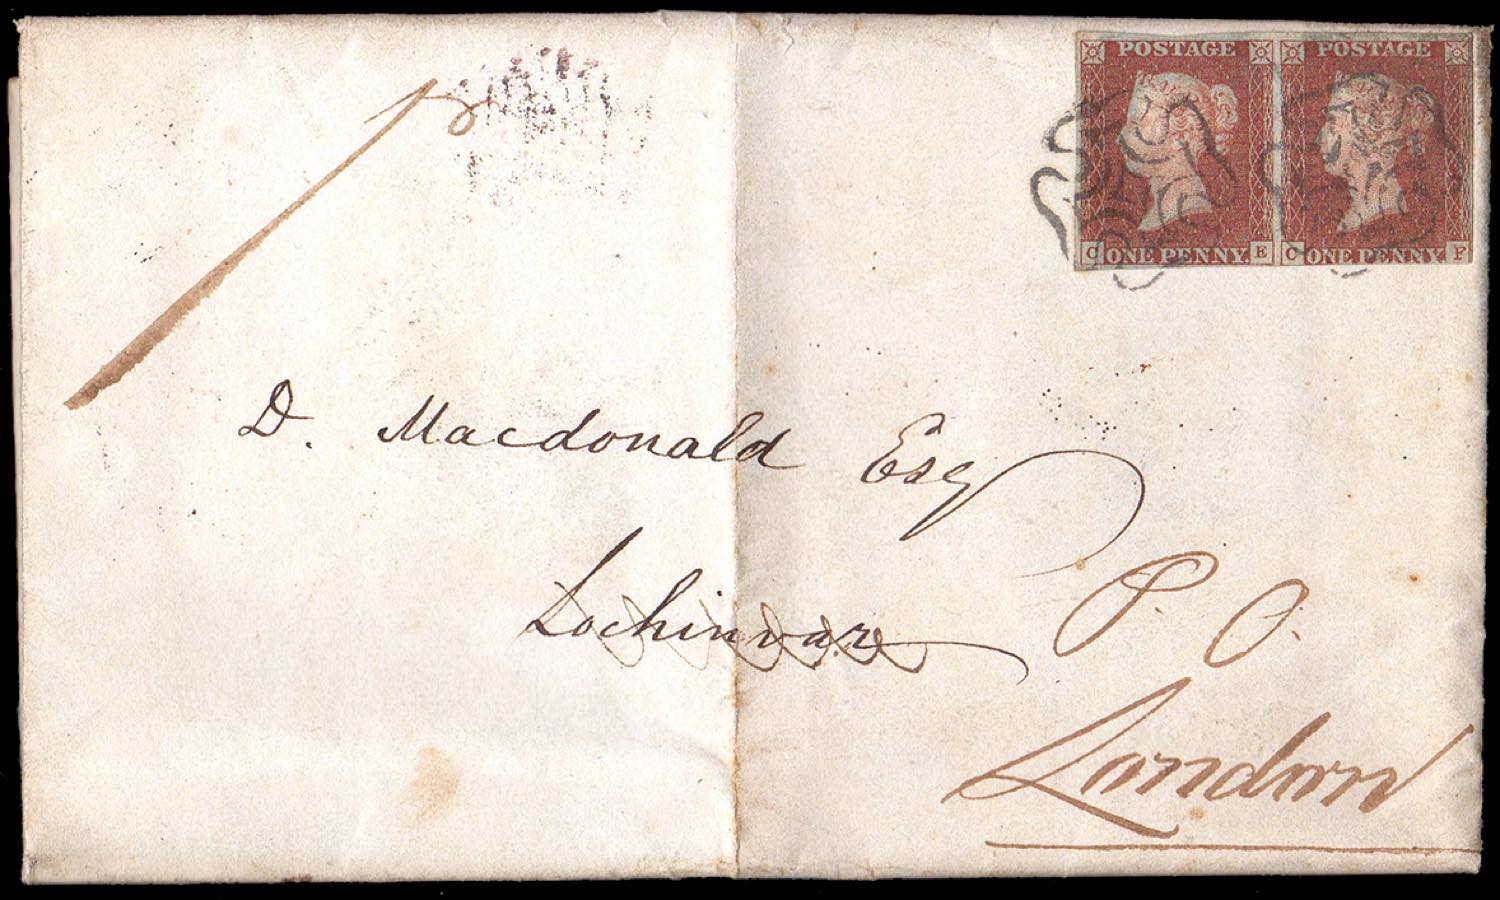 POSTAGE POSTAGE
C ONE PENNY E C ONE PENNY F
1
D. Macdonald Esq
Lochinvar
P. O.
London